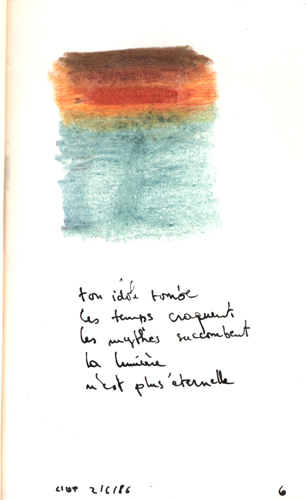 ton idôle tombe
les temps craquent
les mythes succombent
la lumière
n'est plus éternelle
2/6/86 6